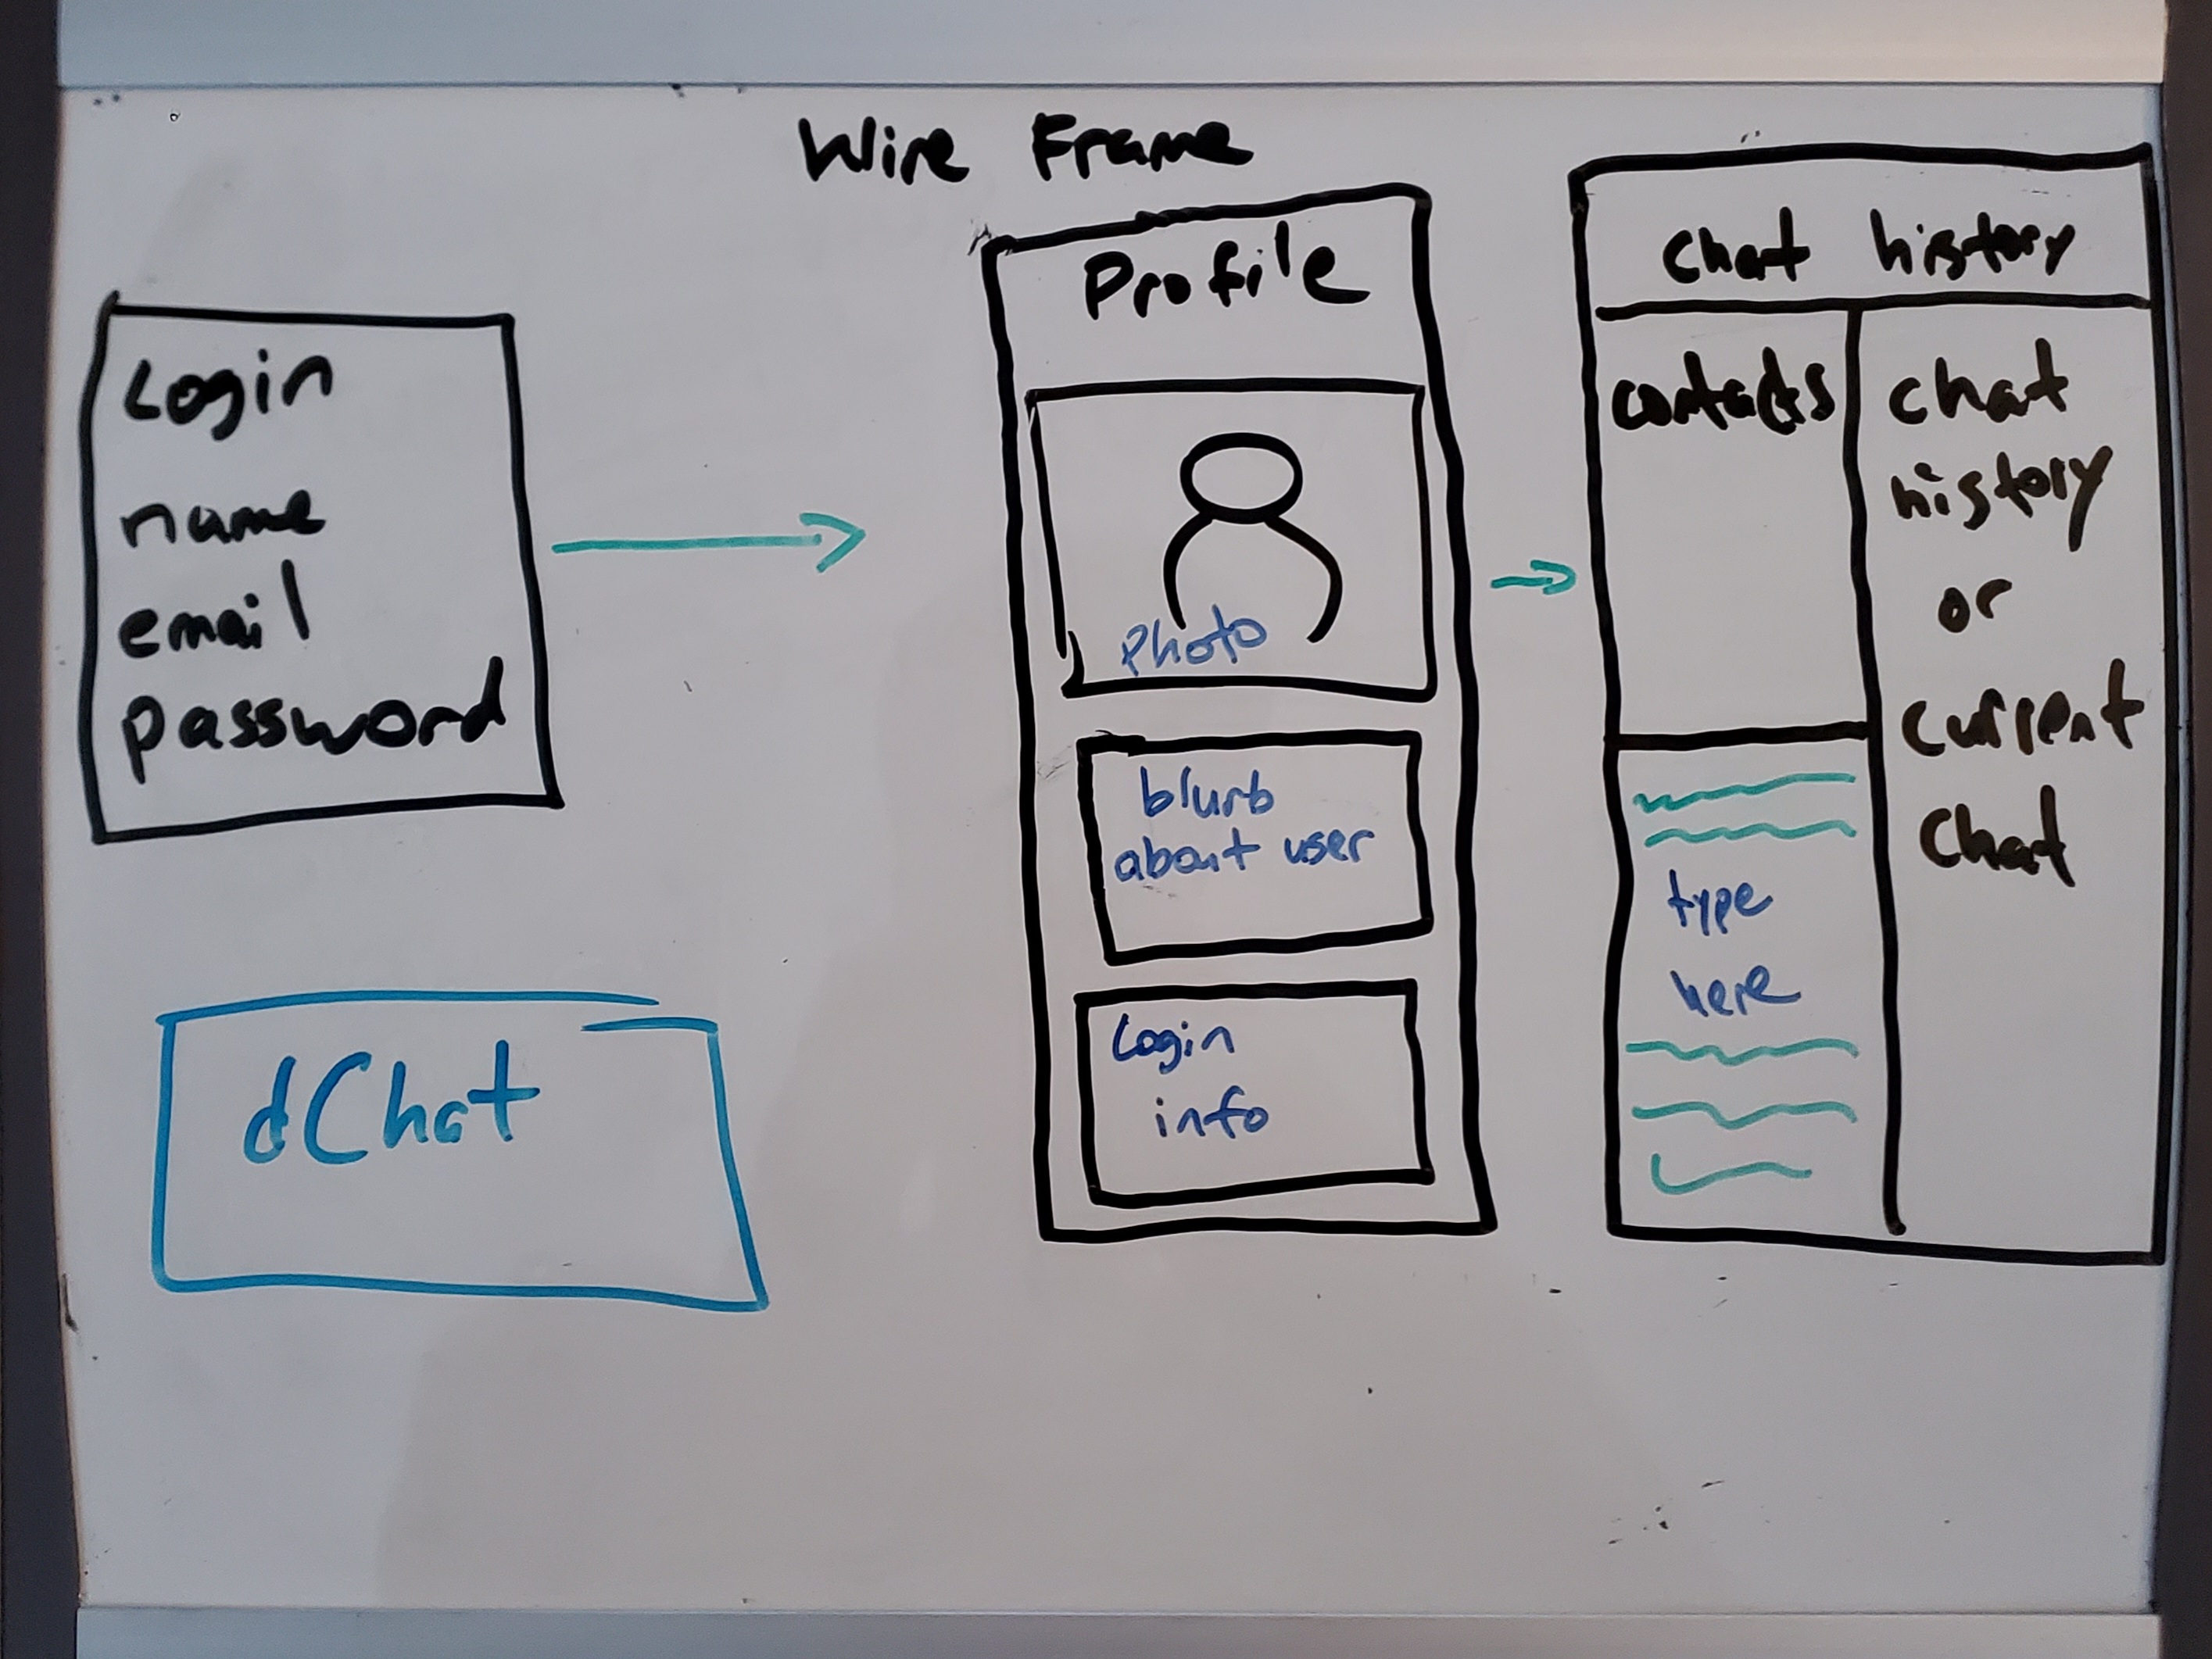 Wire Frame
Login
name
email
password
dChat
Profile
Photo
blurb
about user
Login
info
Chat history
contacts
type
here
chat
history
or
current
Chat